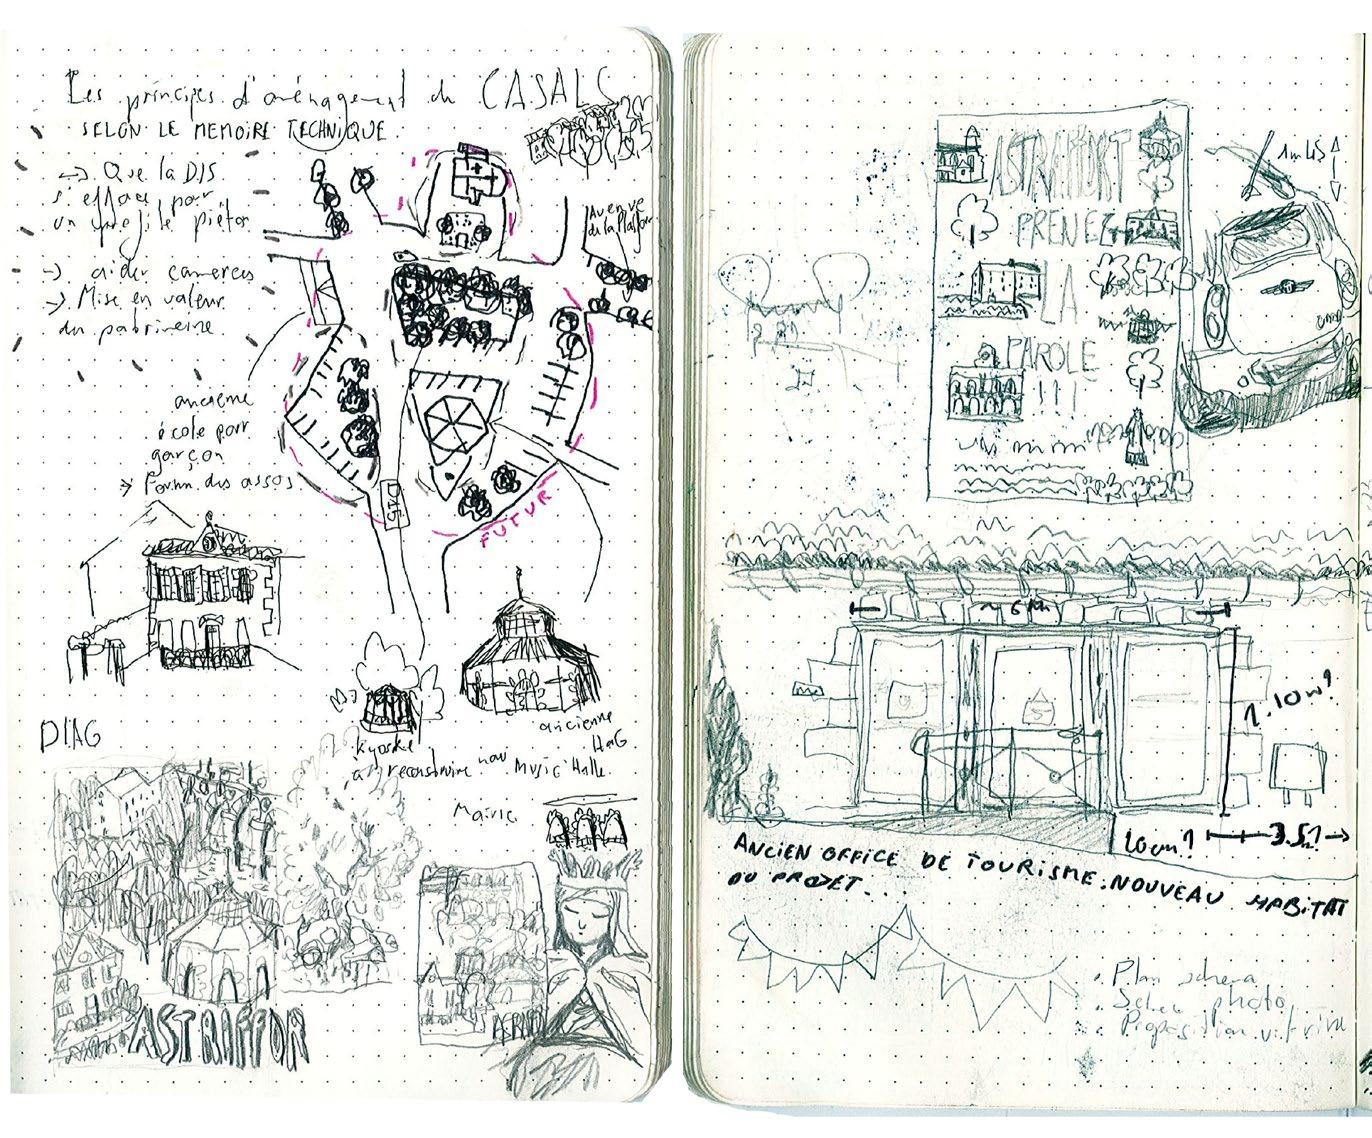 Les principes d'aménagement de CASALS
SELON LE MEMOIRE TECHNIQUE.
-> Que la D15
s'efface pour
un piéton
-> aider comerces
-> Mise en valeur
du patrimoine
Avenue
de la Plas
ancienne
école pour
garçon
-> Forum des assos
D15
FUTUR
kyoske
à reconstruire
ancienne
HàG
Music'Halle
DIAG
Mairie
ASTAFFOR
ASTAFFORT
PRENEZ
LA
PAROLE
!!!
1m45
~6m
1.10m?
10cm?
3.5?
ANCIEN OFFICE DE TOURISME. NOUVEAU HABITAT
DU PROJET...
• Plan schema
• photo
• Proposition vitrine